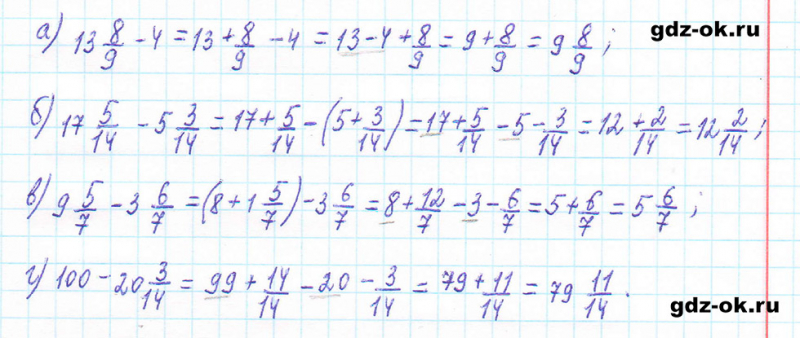 gdz-ok.ru
а) 13 8/9 - 4 = 13 + 8/9 - 4 = 13 - 4 + 8/9 = 9 + 8/9 = 9 8/9 ;
б) 17 5/14 - 5 3/14 = 17 + 5/14 - (5 + 3/14) = 17 + 5/14 - 5 - 3/14 = 12 + 2/14 = 12 2/14 ;
в) 9 5/7 - 3 6/7 = (8 + 1 5/7) - 3 6/7 = 8 + 12/7 - 3 - 6/7 = 5 + 6/7 = 5 6/7 ;
г) 100 - 20 3/14 = 99 + 14/14 - 20 - 3/14 = 79 + 11/14 = 79 11/14 .
gdz-ok.ru